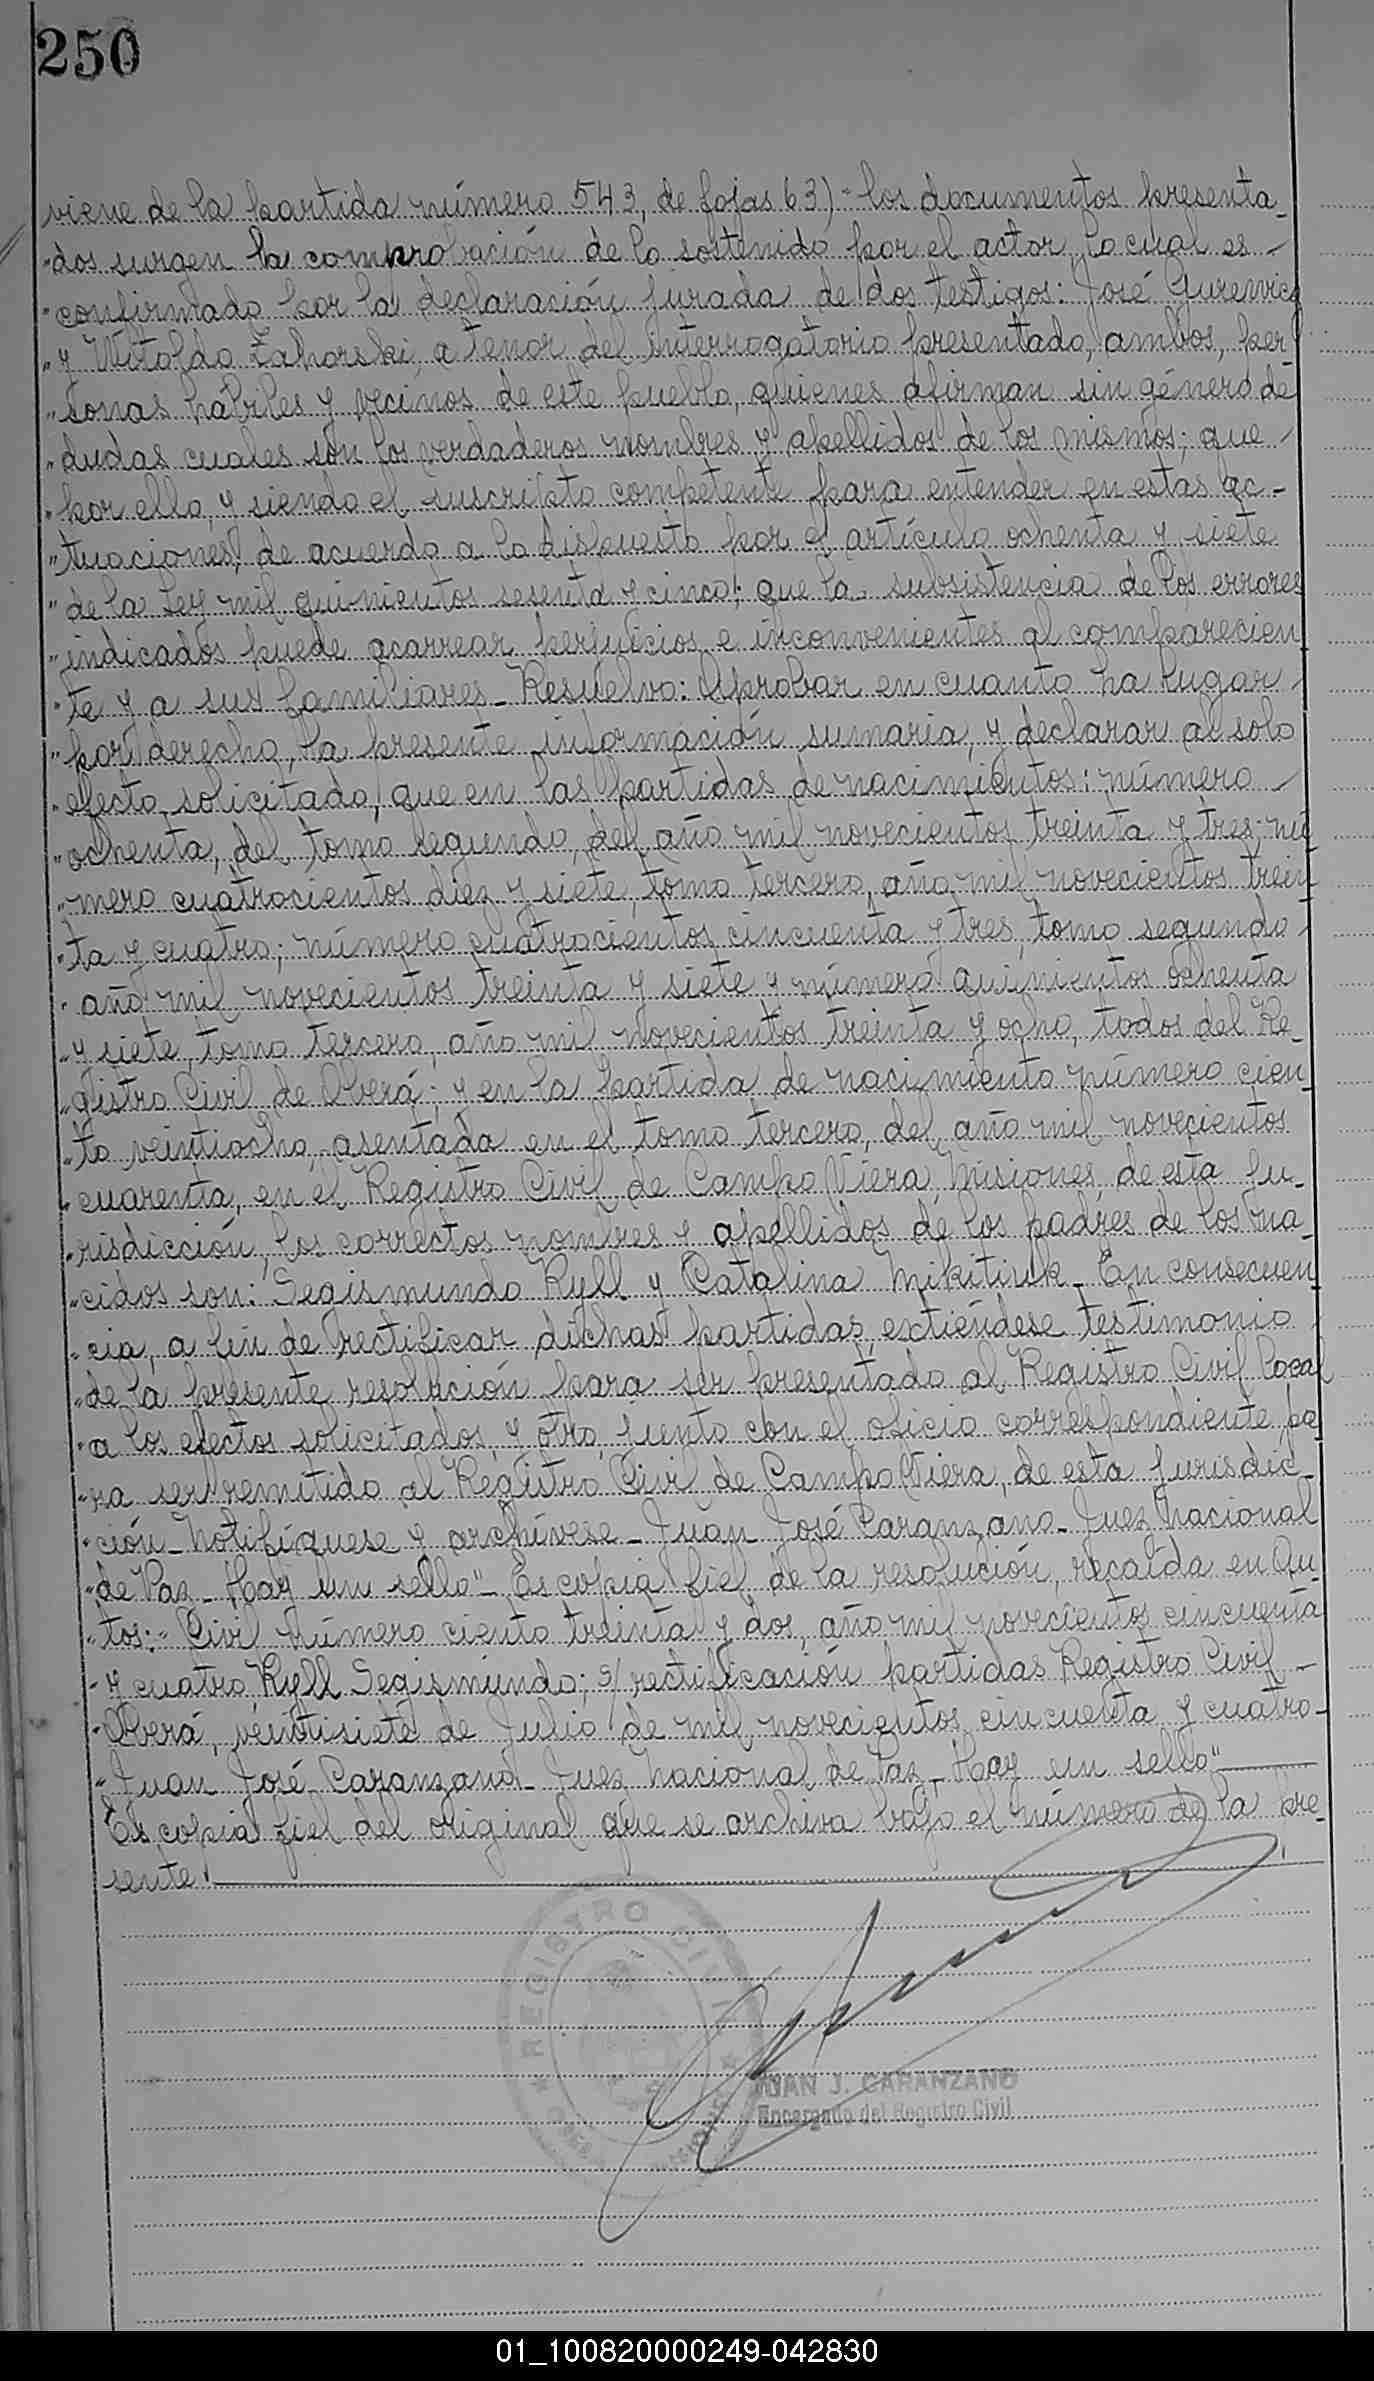 250
viene de la partida número 543, de fojas 63) "los documentos presenta-
"dos surgen la comprobación de lo sostenido por el actor, lo cual es
"confirmado por la declaración jurada de dos testigos: José
"y Witoldo Zahorski, a tenor del interrogatorio presentado, ambos, per-
"sonas hábiles y vecinos de este pueblo, quienes afirman sin género de
"dudas cuales son los verdaderos nombres y apellidos de los mismos; que
"por ello, y siendo el suscripto competente para entender en estas ac-
"tuaciones, de acuerdo a lo dispuesto por el artículo ochenta y siete
"de la Ley mil quinientos sesenta y cinco; que la subsistencia de los errores
"indicados puede acarrear perjuicios e inconvenientes al comparecien
"te y a sus familiares_ Resuelvo: Aprobar en cuanto ha lugar
"por derecho, la presente información sumaria, y declarar al solo
"efecto solicitado, que en las partidas de nacimientos: número
"ochenta, del tomo segundo, del año mil novecientos treinta y tres; nú
"mero cuatrocientos diez y siete, tomo tercero, año mil novecientos trein
"ta y cuatro; número cuatrocientos cincuenta y tres, tomo segundo
"año mil novecientos treinta y siete y número quinientos ochenta
"y siete, tomo tercero, año mil novecientos treinta y ocho, todos del Re-
"gistro Civil de Oberá; y en la partida de nacimiento número cien-
"to veintiocho, asentada en el tomo tercero, del año mil novecientos
"cuarenta, en el Registro Civil de Campo Viera, Misiones, de esta ju-
"risdicción, los correctos nombres y apellidos de los padres de los na
"cidos son: Segismundo Kyll y Catalina Mikitiuk_ En consecuen
"cia, a fin de rectificar dichas partidas, extiéndese testimonio
"de la presente resolución para ser presentado al Registro Civil local
"a los efectos solicitados, y otro, junto con el oficio correspondiente pa
"ra ser remitido al Registro Civil de Campo Viera, de esta jurisdic-
"ción_ Notifíquese y archívese_ Juan José Caranzano_ Juez Nacional
"de Paz_ Hay un sello"_ Es copia fiel de la resolución, recaída en Au-
"tos:" Civil número ciento treinta y dos, año mil novecientos cincuenta
"y cuatro, Kyll Segismundo; s/ rectificación partidas Registro Civil_
"Oberá, veintisiete de Julio de mil novecientos cincuenta y cuatro_
"Juan José Caranzano_ Juez Nacional de Paz_ Hay un sello"
Es copia fiel del original que se archiva bajo el número de la pre-
sente.
REGISTRO CIVIL
JUAN J. CARANZANO
Encargado del Registro Civil
01_100820000249-042830